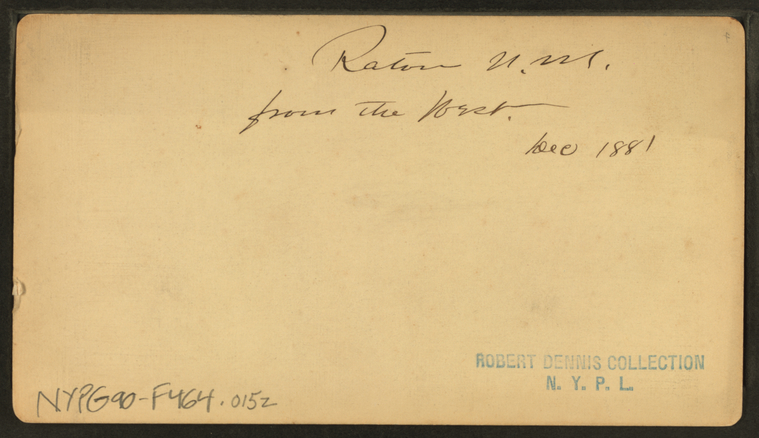 Raton N.M.
from the West.
Dec 1881
ROBERT DENNIS COLLECTION
N. Y. P. L.
NYPG90-F464.015z